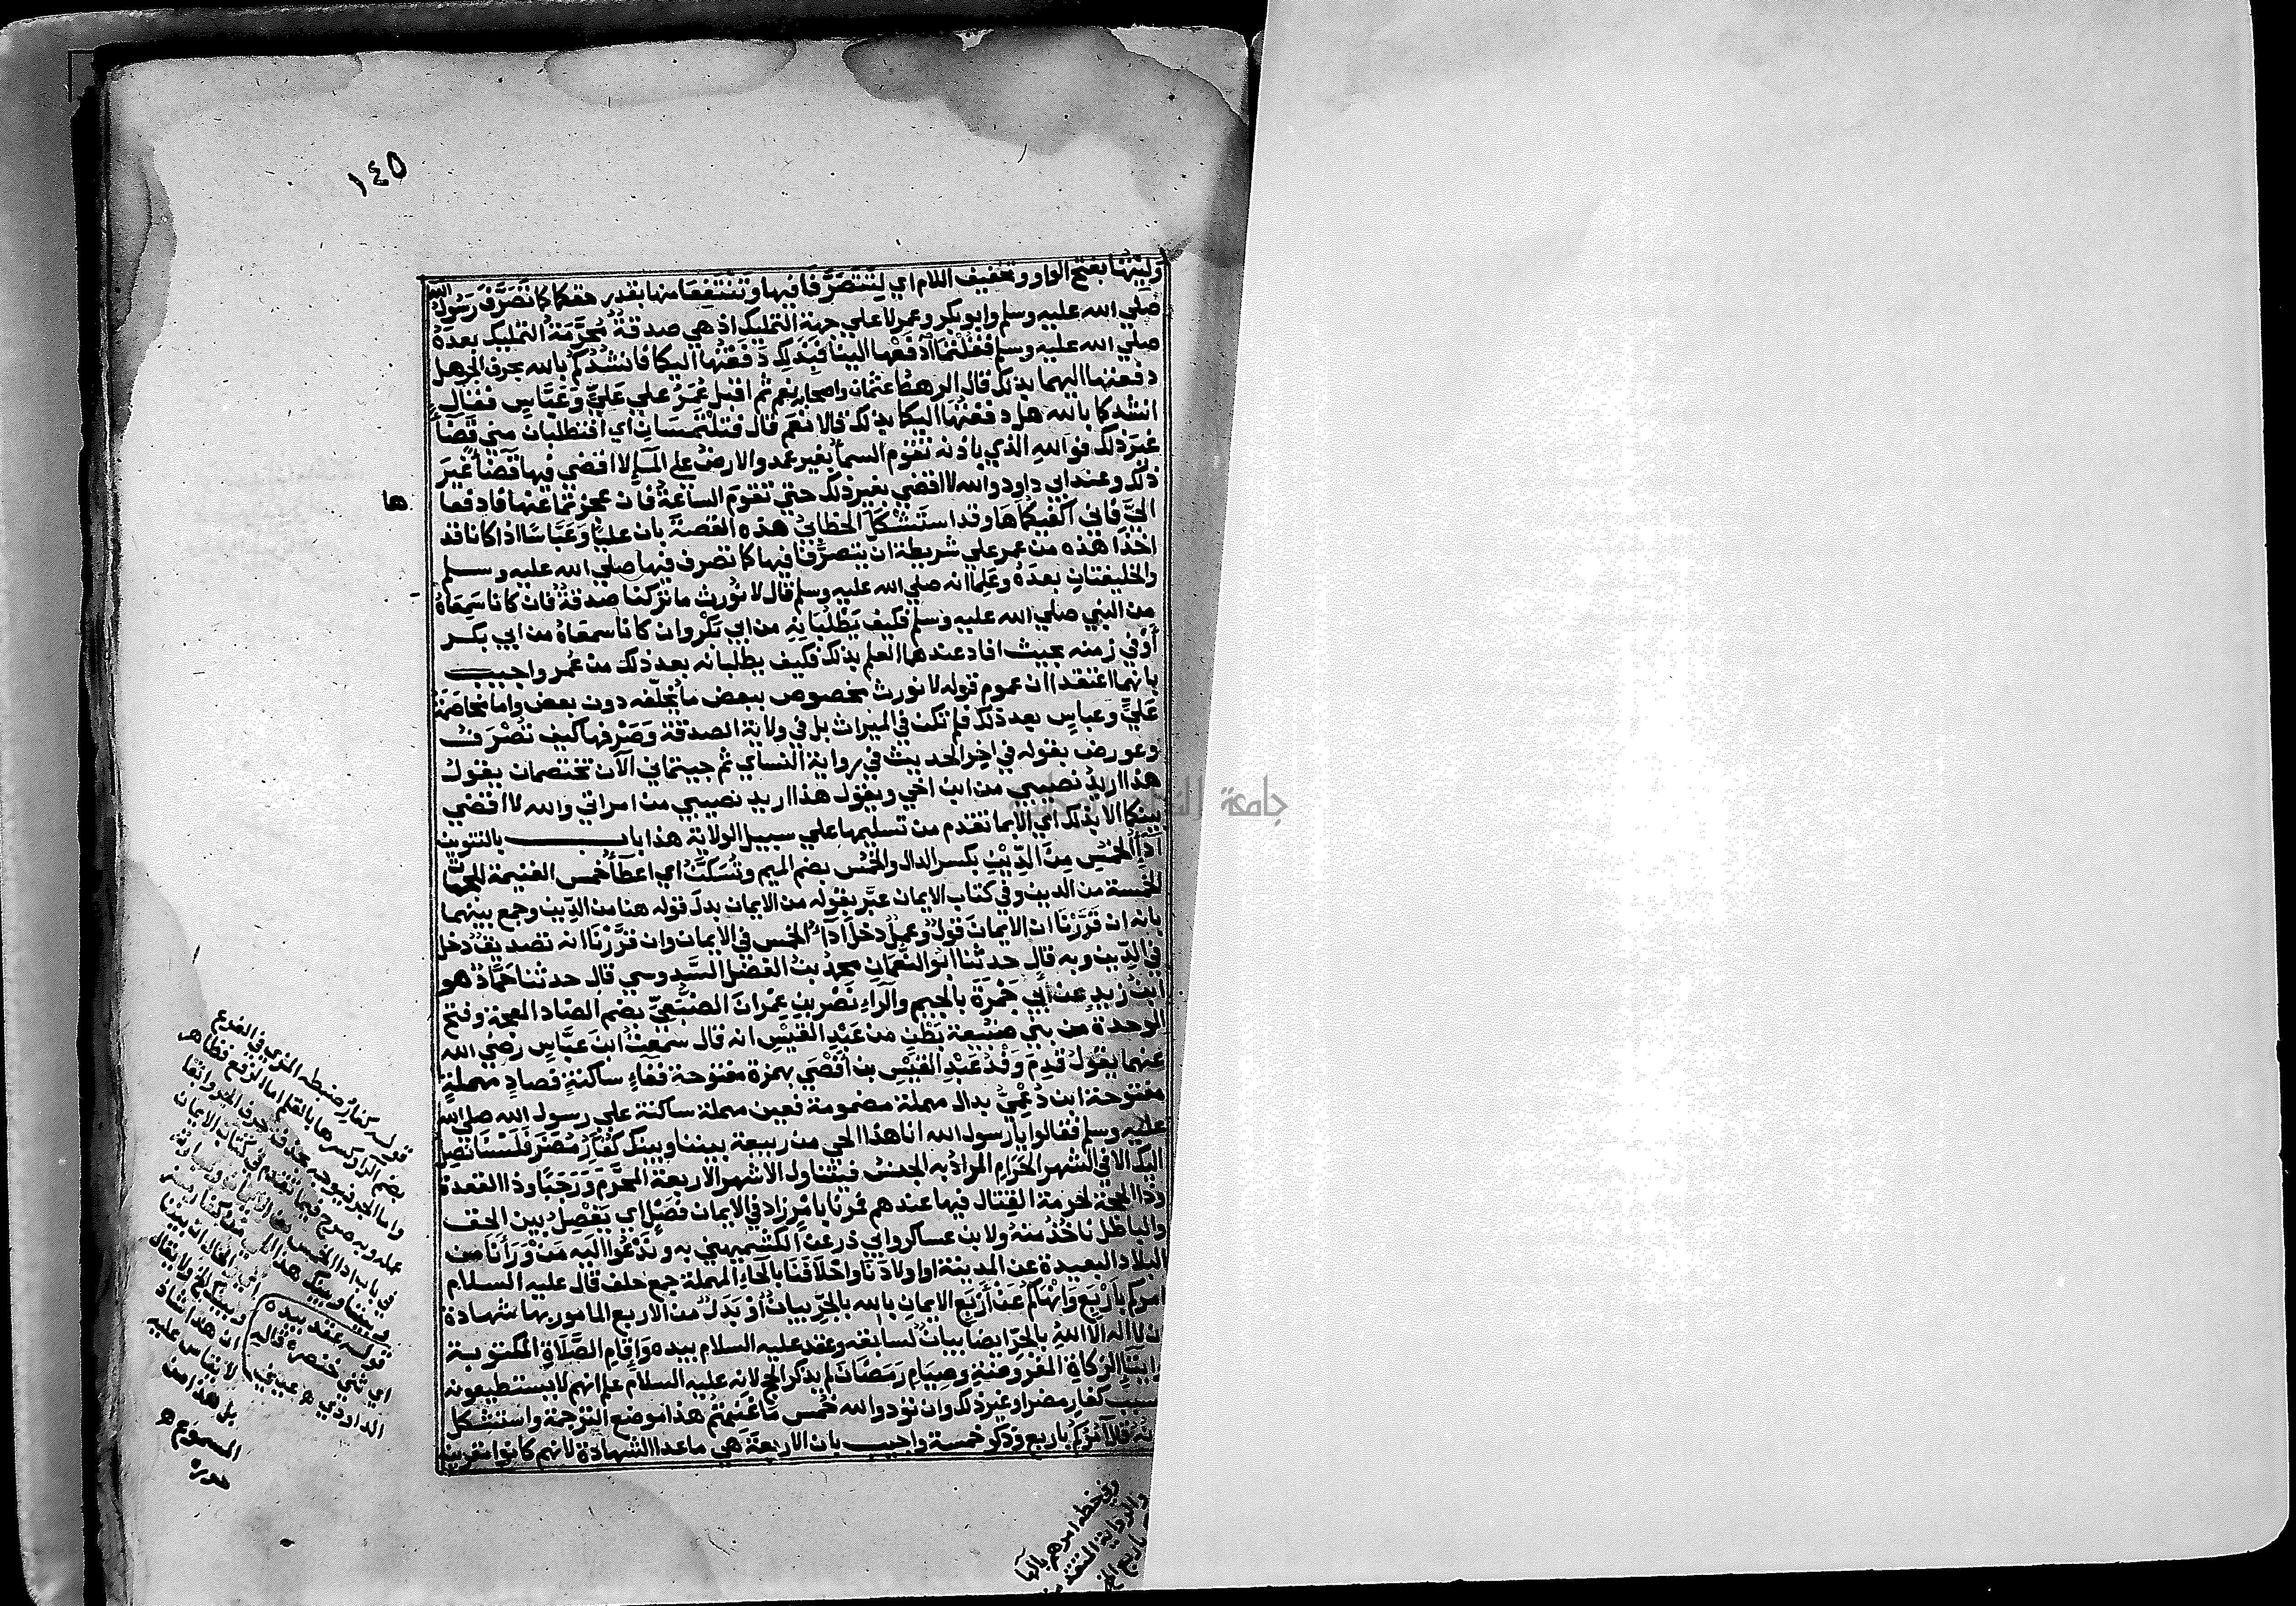 ١٤٥
وليتها بفتح الواو وتخفيف اللام اي لتتصرفا فيها وتنتفعا منها بقدر حقكما كما تصرف رسول الله
صلي الله عليه وسلم وابو بكر وعمر لا علي جهة التمليك اذ هي صدقة محرمة التمليك بعده
صلي الله عليه وسلم فقلتما ادفعها الينا فبذلك دفعتها اليكما فانشدكم بالله بحرف الجر هل
دفعتها اليهما بذلك قال الرهط عثمان واصحابه نعم ثم اقبل عمر علي علي وعباس فقال
انشدكما بالله هل دفعتها اليكما بذلك قالا نعم قال فتلتمسان اي افتطلبان مني قضاء
غير ذلك فوالله الذي باذنه تقوم السماء بغير عمد والارض علي الماء لا اقضي فيها قضاء غير
ذلك وعند ابي داود والله لا اقضي بغير ذلك حتي تقوم الساعة فان عجزتما عنها فادفعا
ها
الي فاني اكفيكماها وقد استشكل الخطابي هذه القصة بان عليا وعباسا اذا كانا قد
اخذا هذه من عمر علي شريطة ان يتصرفا فيها كما تصرف فيها صلي الله عليه وسلم
والخليفتان بعده وعلما انه صلي الله عليه وسلم قال لا نورث ما تركنا صدقة فان كانا سمعاه
من النبي صلي الله عليه وسلم فكيف يطلبانه من ابي بكر وان كانا سمعاه من ابي بكر
او في زمنه بحيث افاد عندهما العلم بذلك فكيف يطلبانه بعد ذلك من عمر واجيب
بانهما اعتقدا ان عموم قوله لا نورث مخصوص ببعض ما يخلفه دون بعض واما مخاصمة
علي وعباس بعد ذلك فلم تكن في الميراث بل في ولاية الصدقة وصرفها كيف تصرف
وعورض بقوله في اخر الحديث في رواية النساي ثم جيتماني الان تختصمان يقول
هذا اريد نصيبي من ابن اخي ويقول هذا اريد نصيبي من امراتي والله لا اقضي
بينكما الا بذلك اي الا بما تقدم من تسليمها علي سبيل الولاية هذا باب بالتنوين
اداء الخمس من الدين بكسر الدال والخمس بضم الميم وتسكن اي اعطاء خمس الغنيمة للجهات
الخمسة من الدين وفي كتاب الايمان عبر بقوله من الايمان بدل قوله هنا من الدين وجمع بينهما
بانه ان قررنا ان الايمان قول وعمل دخل اداء الخمس في الايمان وان قررنا انه تصديق دخل
في الدين وبه قال حدثنا ابو النعمان محمد بن الفضل السدوسي قال حدثنا حماد هو
ابن زيد عن ابي جمرة بالجيم والراء نصر بن عمران الضبعي بضم الضاد المعجمة وفتح
الوحدة من بني ضبيعة بطن من عبد القيس انه قال سمعت ابن عباس رضي الله
عنهما يقول قدم وفد عبد القيس بن افصي بهمزة مفتوحة ففاء ساكنة فصاد مهملة
مفتوحة ابن دعمي بدال مهملة مضمومة فعين مهملة ساكنة علي رسول الله صلي الله
عليه وسلم فقالوا يا رسول الله انا هذا الحي من ربيعة بيننا وبينك كفار مضر فلسنا نصل
اليك الا في الشهر الحرام المراد به الجنس فيتناول الاشهر الاربعة المحرم ورجبا وذا القعدة
وذا الحجة لحرمة القتال فيها عندهم فمرنا بامر زاد في الايمان فصل اي يفصل بين الحق
والباطل ناخذ منه ولابن عساكر وابي ذر عن الكشميهني به وندعوا اليه من وراءنا من
البلاد البعيدة عن المدينة او اولادنا واحلافنا بالحاء المهملة جمع حلف قال عليه السلام
امركم باربع وانهاكم عن اربع الايمان بالله بالجر بيان او بدل من الاربع المامور بها شهادة
ان لا اله الا الله بالجر ايضا بيان لسابقه وعقد عليه السلام بيده واقام الصلاة المكتوبة
وايتاء الزكاة المفروضة وصيام رمضان لم يذكر الحج لانه عليه السلام علم انهم لا يستطيعونه
بسبب كفار مضر او غير ذلك وان تودوا لله خمس ما غنمتم هذا موضع الترجمة واستشكل
انه قال امركم باربع وذكر خمسة واجيب بان الاربعة هي ما عدا الشهادة لانهم كانوا مقرين
قوله كفار ضبطه المزي في الفرع
بضم الراء وكسرها بالقلم اما الرفع فظاهر
واما الجر فيوجه بحذف حرف الجر وابقا
عمله وبه صرح فيما تقدم في كتاب الايمان
في باب اداء الخمس من الايمان
وبيننا وبينك هذا الحي من كفار مضر
قوله عقد بيده
اي ثني خنصره قاله
الداودي ه عيني
ان هذا شاذ
لا يقاس عليه
بل هذا من
المسموع ه